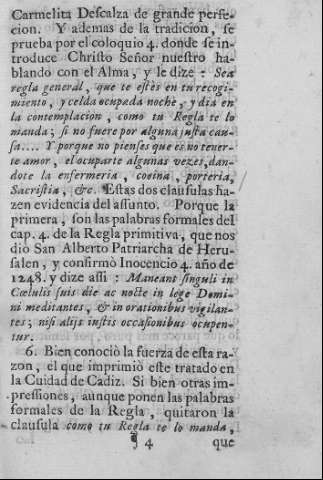 Carmelita Descalza de grande perfe-
cion. Y ademas de la tradicion, se
prueba por el coloquio 4. donde se in-
troduce Christo Señor nuestro ha-
blando con el Alma, y le dize : Sea
regla general, que te estès en tu recogi-
miento, y celda ocupada noche, y dia en
la contemplacion, como tu Regla te lo
manda; si no fuere por alguna justa cau-
sa.... Y porque no pienses que es no tener-
te amor, el ocuparte algunas vezes, dan-
dote la enfermeria, cocina, porteria,
Sacristia, &c. Estas dos clausulas ha-
zen evidencia del assunto. Porque la
primera, son las palabras formales del
cap. 4. de la Regla primitiva, que nos
diò San Alberto Patriarcha de Heru-
salen, y confirmò Inocencio 4. año de
1248. y dize assi : Maneant singuli in
Cœlulis suis die ac nocte in lege Domi-
ni meditantes, & in orationibus vigilan-
tes; nisi alijs iustis occasionibus ocupen-
tur.
6. Bien conociò la fuerza de esta ra-
zon, el que imprimiò este tratado en
la Cuidad de Cadiz. Si bien otras im-
pressiones, aunque ponen las palabras
formales de la Regla, quitaron la
clausula como tu Regla te lo manda,
¶ 4 que